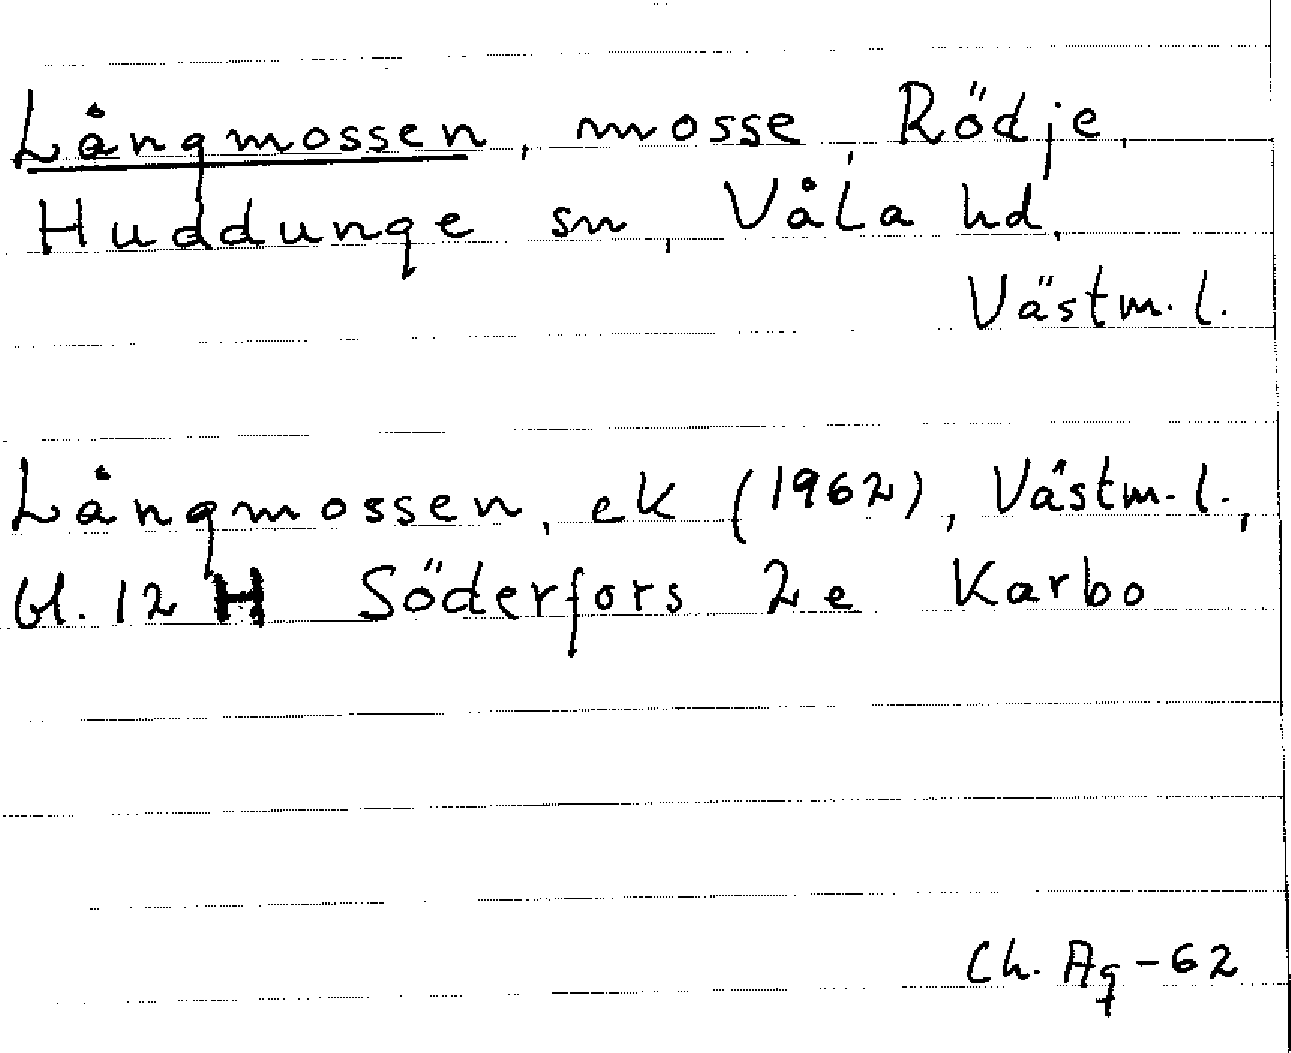 Långmossen, mosse, Rödje,
Huddunge sn, Våla hd,
Västm. l.
Långmossen, ek (1962), Västm. l.,
bl. 12 H Söderfors 2e Karbo
Ch. Ag -62